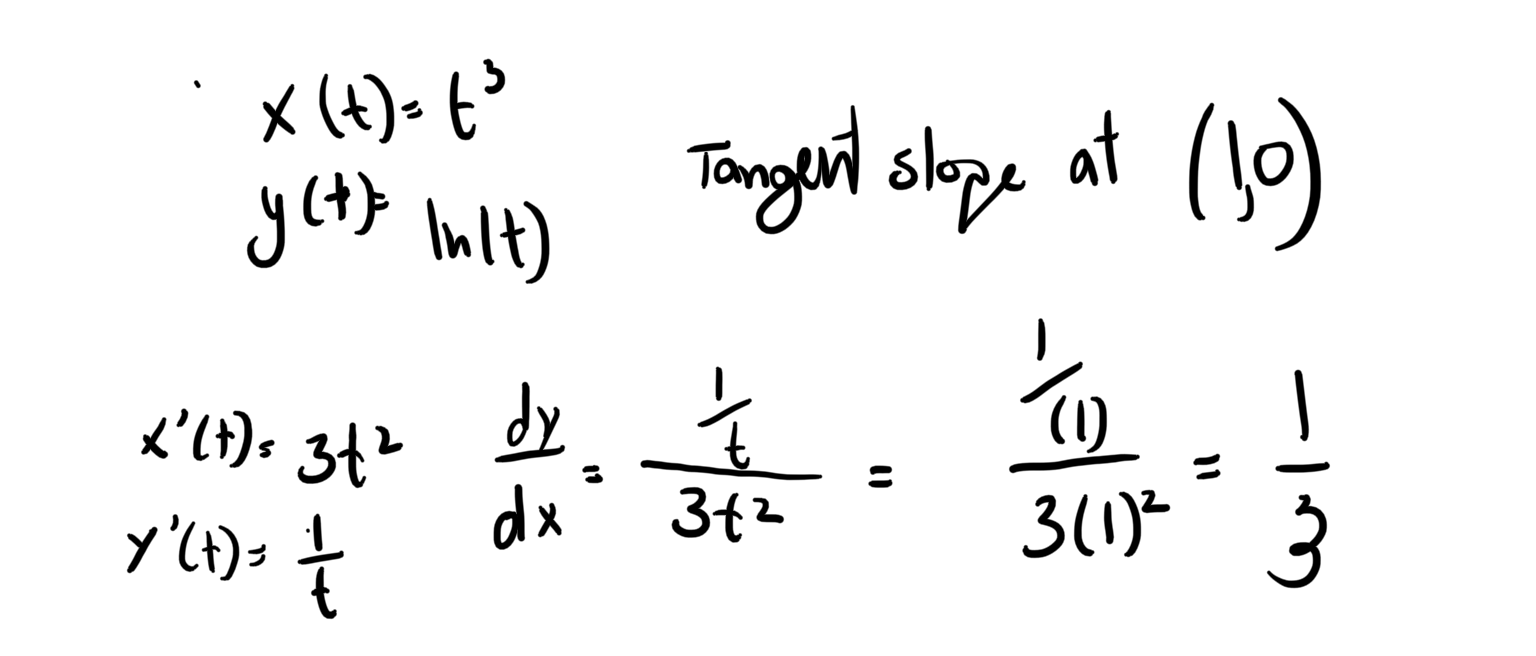 x(t)= t³
y(t)= ln(t)
Tangent slope at (1,0)
x'(t)= 3t²
y'(t)= 1/t
dy/dx = (1/t)/(3t²) = (1/(1))/(3(1)²) = 1/3